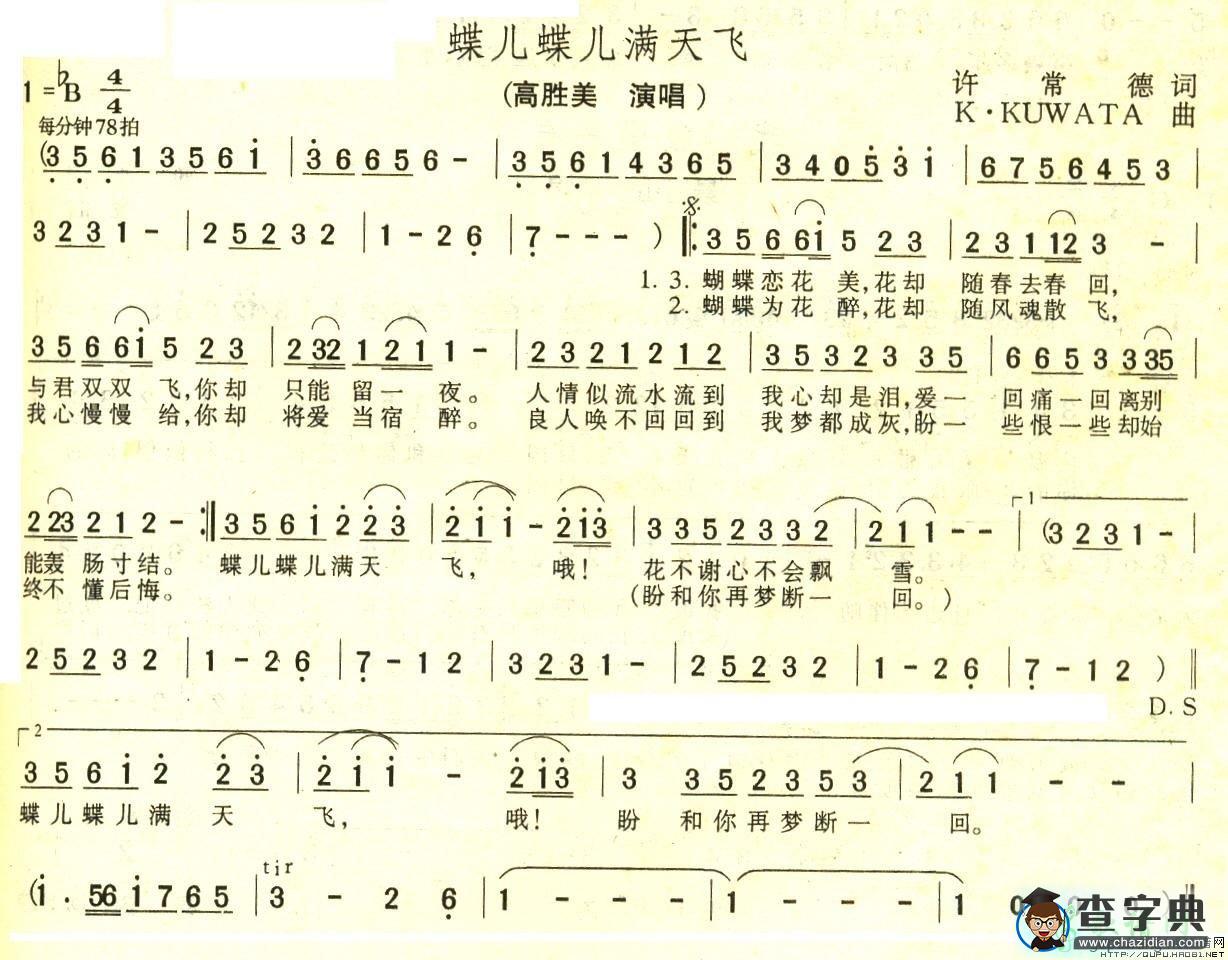 蝶儿蝶儿满天飞
1=♭B 4/4
(高胜美 演唱)
许常德词
每分钟78拍
K·KUWATA 曲
(3̣ 5̣ 6̣ 1 3 5 6 i | 3̇ 6 6 5 6 - | 3̣ 5̣ 6̣ 1 4 3 6 5 | 3 4 0 5̇ 3̇ i | 6 7 5 6 4 5 3 |
3 2 3 1 - | 2 5 2 3 2 | 1 - 2 6̣ | 7̣ - - - ) 𝄋 ‖: 3 5 6 6 i 5 2 3 | 2 3 1 1 2 3 - |
1. 3. 蝴蝶恋花 美,花却 随春去春 回,
2. 蝴蝶为花 醉,花却 随风魂散 飞,
3 5 6 6 i 5 2 3 | 2 3 2 1 2 1 1 - | 2 3 2 1 2 1 2 2 | 3 5 3 2 3 3 5 | 6 6 5 3 3 3 5 |
与君双双 飞,你却 只能 留一 夜。 人情似流水流到 我心却是泪,爱一 回痛一回离别
我心慢慢 给,你却 将爱 当宿 醉。 良人唤不回回到 我梦都成灰,盼一 些恨一些却始
2 2 3 2 1 2 - :‖ 3 5 6 i 2̇ 2̇ 3̇ | 2̇ i i - 2̇ i 3̇ | 3 3 5 2 3 3 2 | 2 1 1 - - | 1 (3 2 3 1 - |
能轰 肠寸结。 蝶儿蝶儿满天 飞, 哦! 花不谢心不会飘 雪。
终不 懂后悔。 (盼和你再梦断一 回。)
2 5 2 3 2 | 1 - 2 6̣ | 7̣ - 1 2 | 3 2 3 1 - | 2 5 2 3 2 | 1 - 2 6̣ | 7̣ - 1 2 ) ‖
D. S
2
3 5 6 i 2̇ 2̇ 3̇ | 2̇ i i - 2̇ i 3̇ | 3 3 5 2 3 5 3 | 2 1 1 - - |
蝶儿蝶儿满 天 飞, 哦! 盼 和你再梦断一 回。
tir
(i · 5 6 i 7 6 5 | 3 - 2 6̣ | 1 - - - | 1 - - - | 1 0
查字典
www.chazidian.com
HTTP://QUPU.HAO81.NET